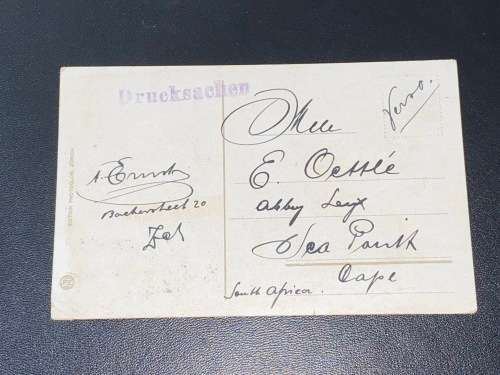 Drucksachen
Verso.
Mlle
E. Oettlé
Abbey Leix
Sea Point
Cape
South Africa.
A. Ernst
20